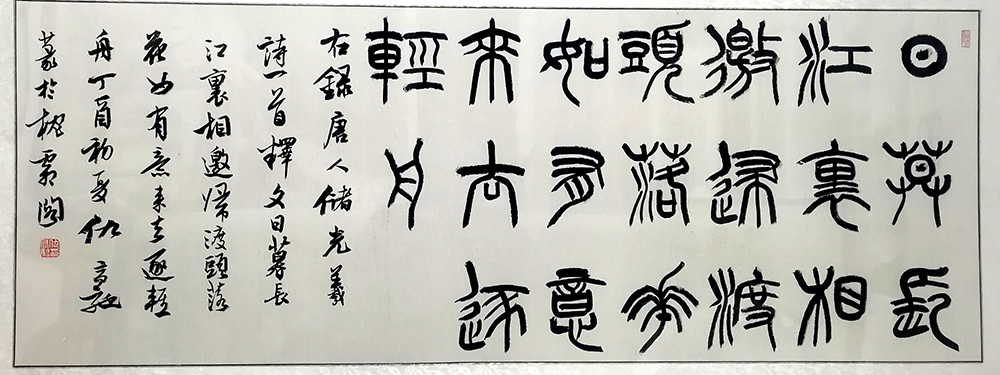 日莫長
江裏相
邀歸渡
頭落華
如有意
來去逐
輕舟
右録唐人儲光羲
詩一首釋文日暮長
江裏相邀歸渡頭落
花如有意來去逐輕
舟丁酉初夏
篆於